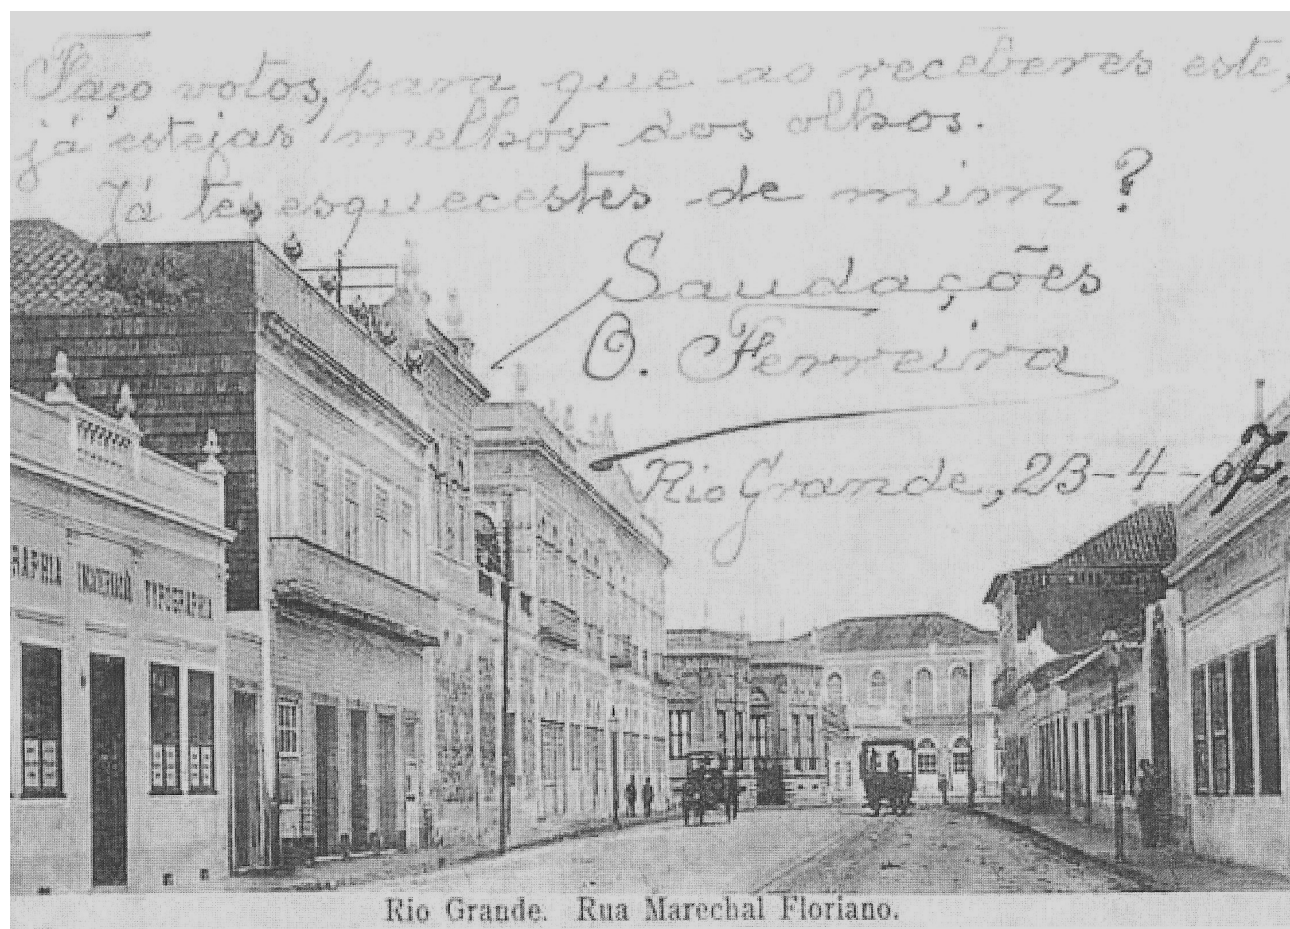 Faço votos, para que ao receberes este,
já estejas melhor dos olhos.
Já tes esquecestes de mim?
Saudações
O. Ferreira
Rio Grande, 23-4-07.
RAPHIA INTEGRIDADE TYPOGRAPHIA
Rio Grande. Rua Marechal Floriano.